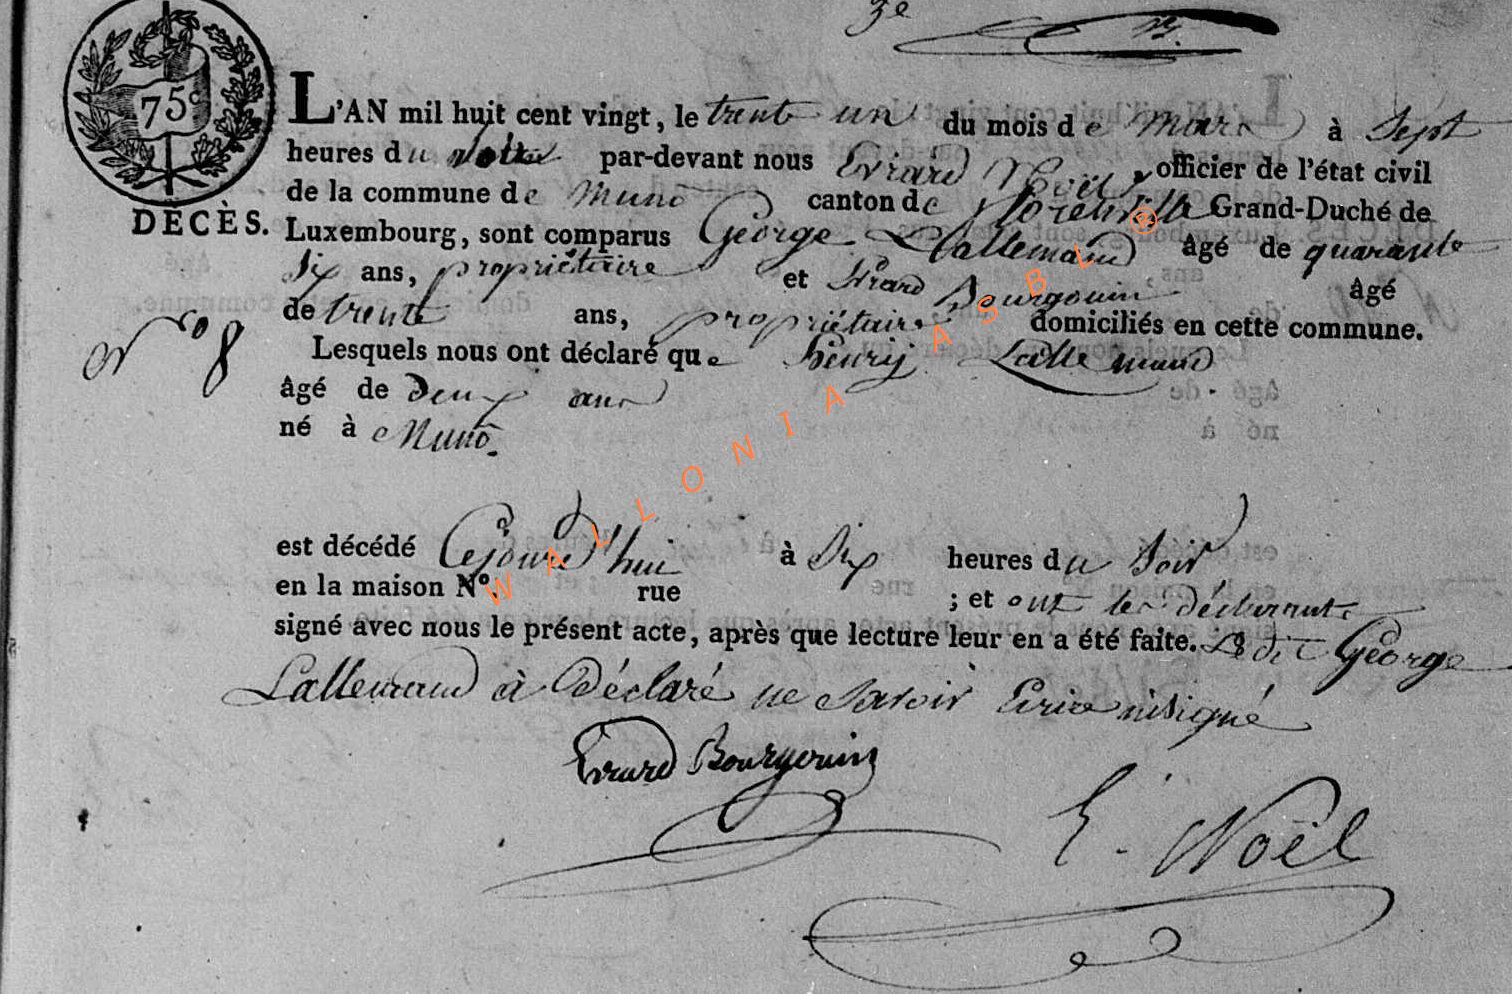 3e
75c
L'AN mil huit cent vingt, le trente un du mois de mars à Sept
heures du par-devant nous Evrard Noël, officier de l'état civil
de la commune de Muno canton de florenville Grand-Duché de
DÉCÈS. Luxembourg, sont comparus George Lallemand âgé de quarante
Six ans, propriétaire et Evrard Bourgouin âgé
de trente ans, propriétaire domiciliés en cette commune.
N° 8
Lesquels nous ont déclaré que henrij Lallemand
âgé de deux ans
né à Muno.
est décédé Cejourd'hui à Six heures du Soir
en la maison N° rue ; et ont les déclarants
signé avec nous le présent acte, après que lecture leur en a été faite. Le dit George
Lallemand à Déclaré ne Savoir Ecrire ni signé
Evrard Bourgouin
E. Noël
WALLONIA ASBL ®